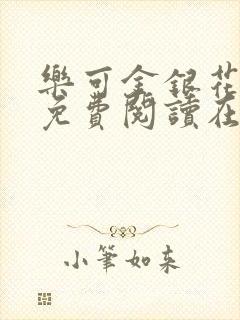 樂可金銀花
免費閱讀在
小筆如來